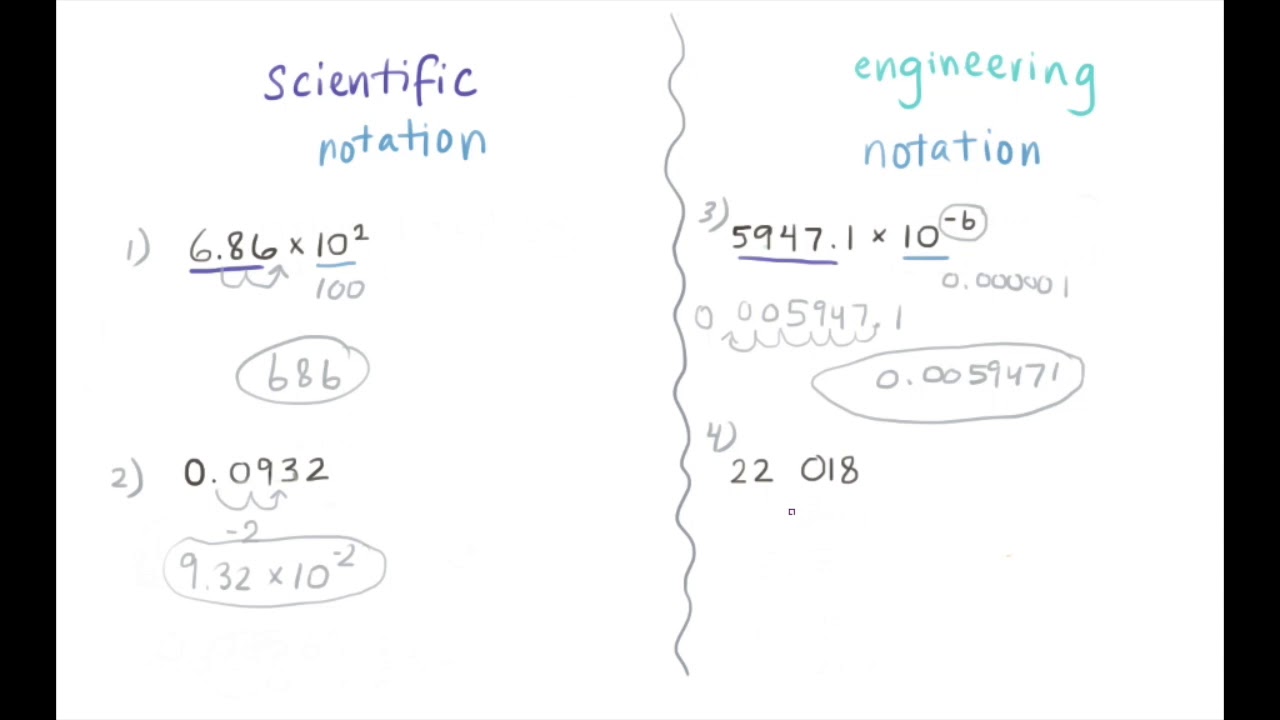 scientific
notation
1) 6.86 × 10²
100
686
2) 0.0932
-2
9.32 × 10⁻²
engineering
notation
3) 5947.1 × 10⁻⁶
0.000001
0 005947.1
0.0059471
4)
22 018